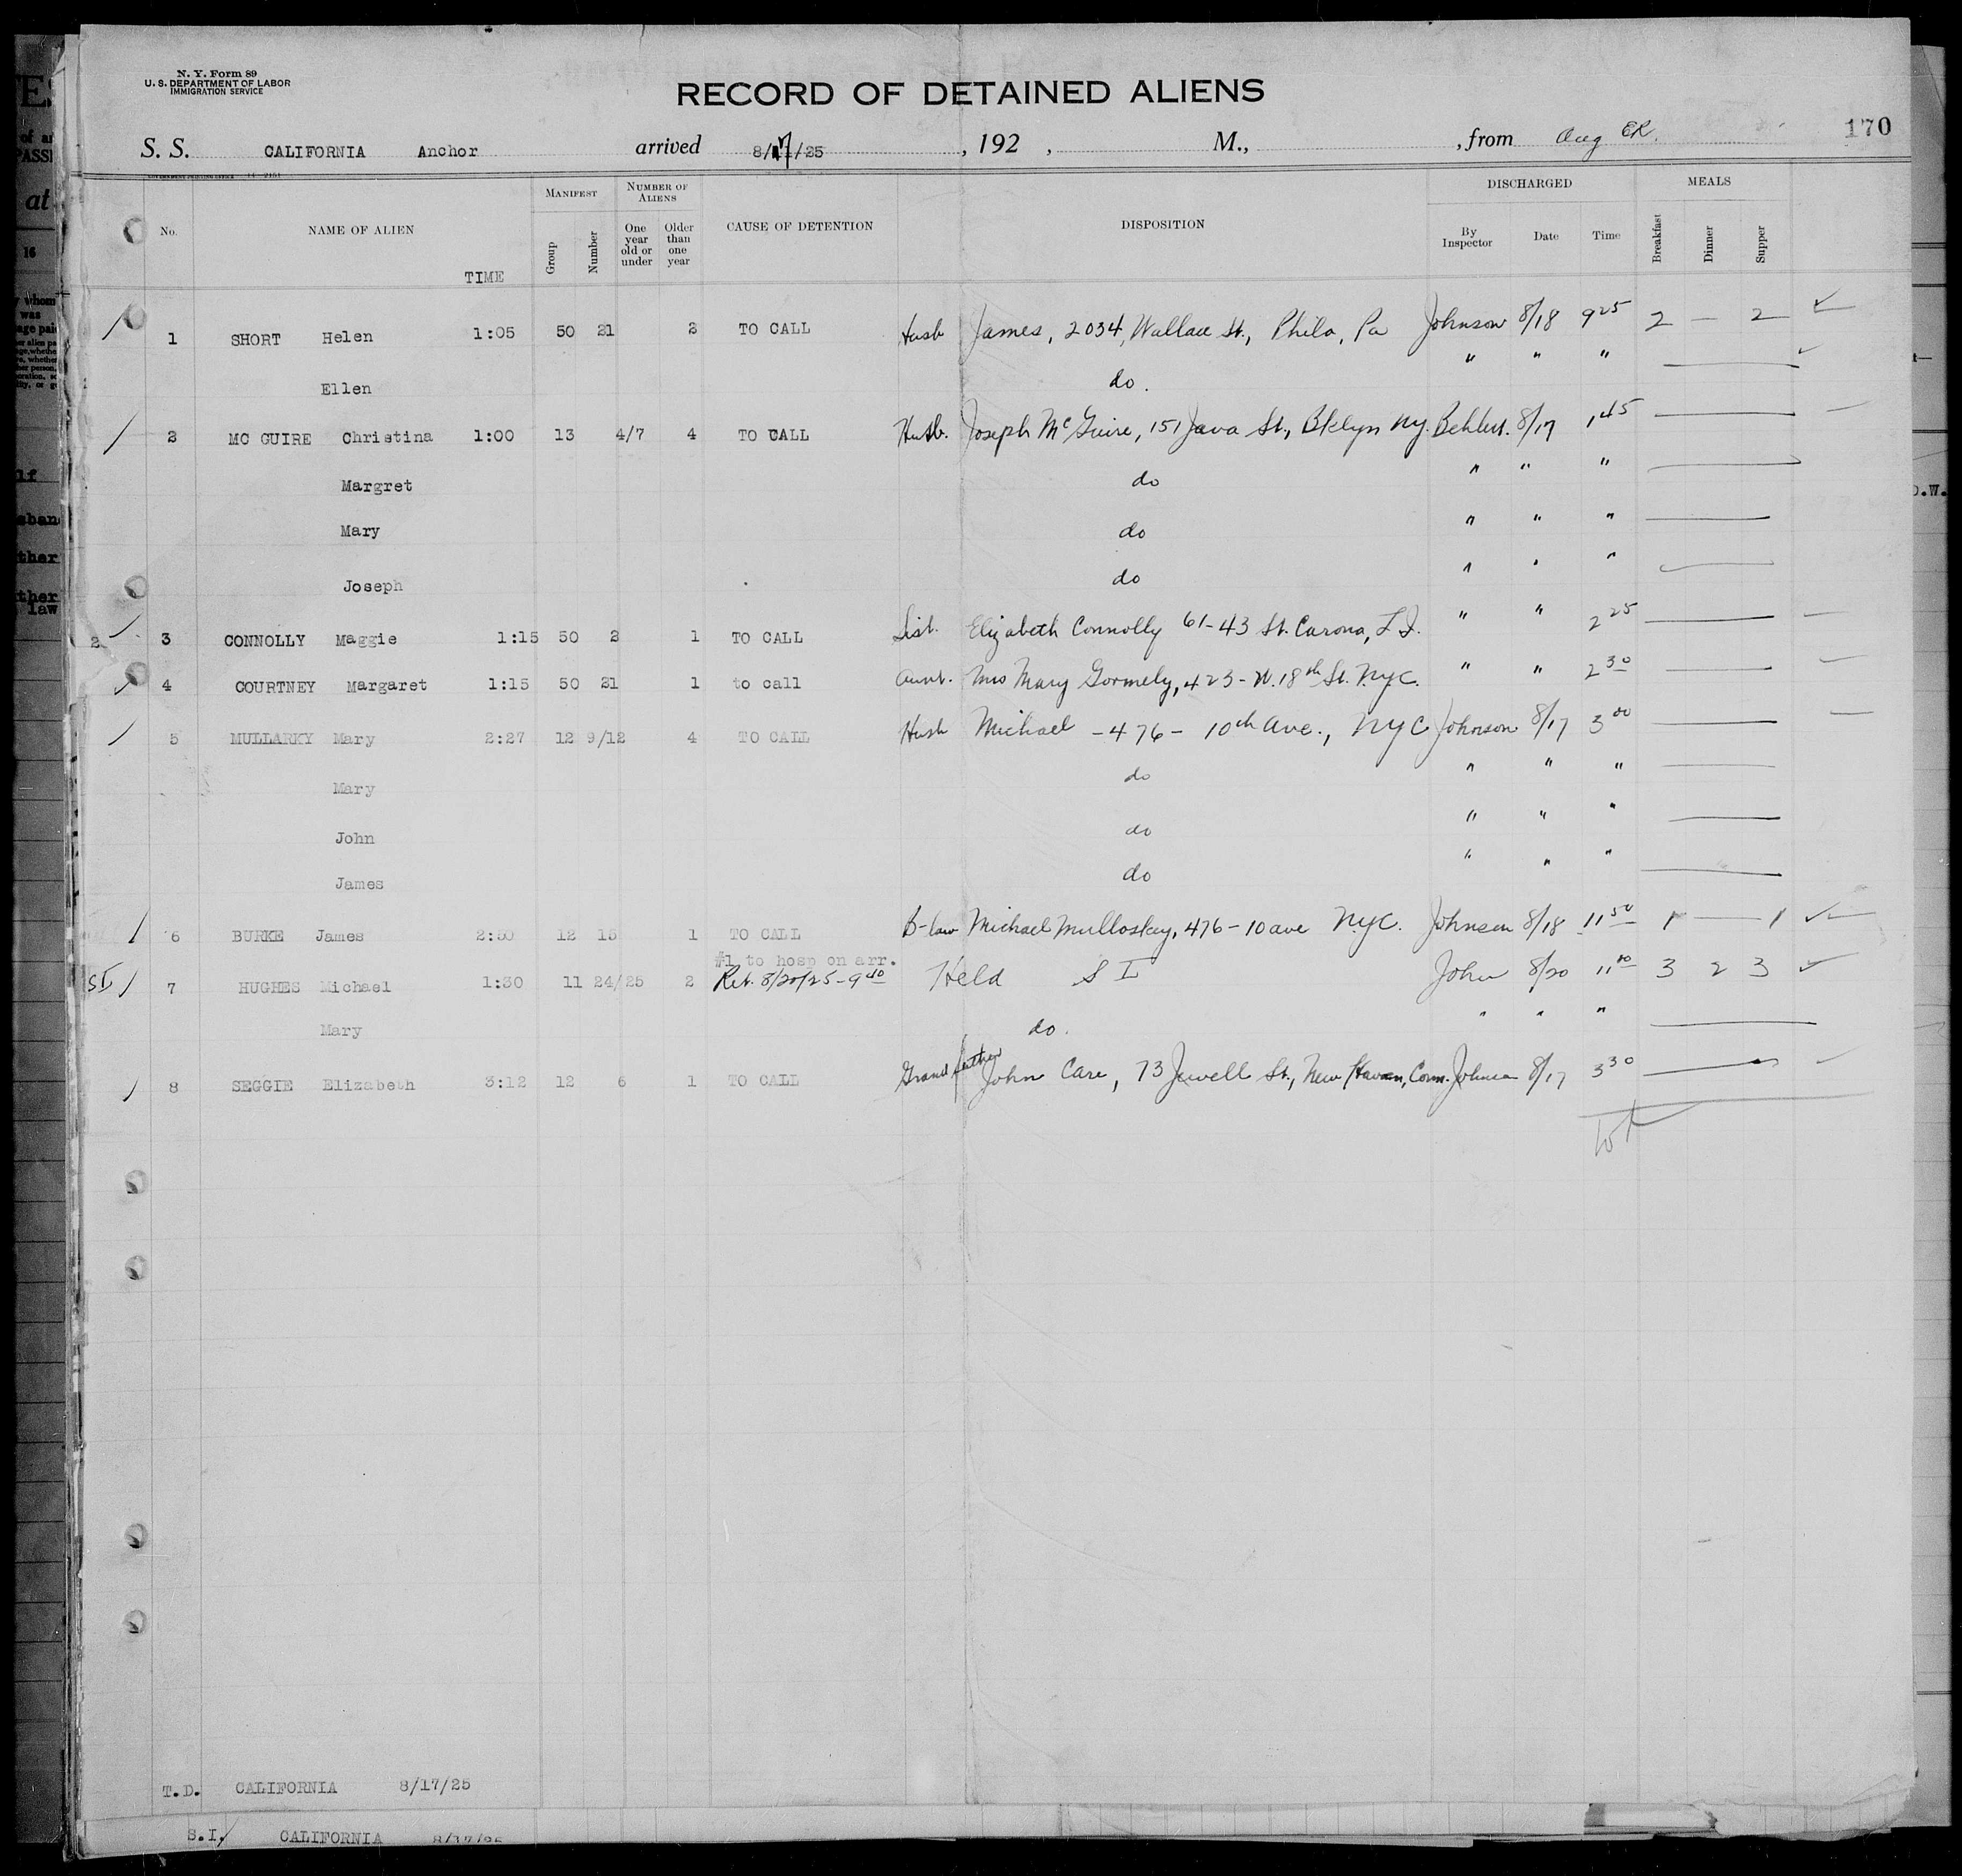 N. Y. Form 89
U. S. DEPARTMENT OF LABOR
IMMIGRATION SERVICE
RECORD OF DETAINED ALIENS
170
S. S. CALIFORNIA Anchor arrived 8/17/25, 192 , M., , from Aug
No. NAME OF ALIEN TIME MANIFEST Group Number NUMBER OF ALIENS One year old or under Older than one year CAUSE OF DETENTION DISPOSITION DISCHARGED By Inspector Date Time MEALS Breakfast Dinner Supper
1 SHORT Helen 1:05 50 21 2 TO CALL Husb James, 2034, Wallace St., Phila, Pa Johnson 8/18 9 25 2 — 2 ✓
Ellen do. " " "
2 MC GUIRE Christina 1:00 13 4/7 4 TO CALL Husb. Joseph McGuire, 151 Java St., Bklyn NY. 8/17 1 45
Margret do " " "
Mary do " " "
Joseph do " " "
2 ✓ 3 CONNOLLY Maggie 1:15 50 2 1 TO CALL Sist. Elizabeth Connolly 61-43 St. Carona, L I. " " 2 25
✓ 4 COURTNEY Margaret 1:15 50 21 1 to call Aunt. Mrs Mary Gormely, 423- W. 18th St. N.Y.C. " " 2 30
5 MULLARKY Mary 2:27 12 9/12 4 TO CALL Husb Michael - 476 - 10th Ave., NYC Johnson 8/17 3 00
Mary do " " "
John do " " "
James do " " "
6 BURKE James 2:50 12 15 1 TO CALL B-law Michael Mulloskay, 476-10 ave N.Y.C. Johnson 8/18 11 50 1 — 1 ✓
#1 to hosp on arr.
SI 7 HUGHES Michael 1:30 11 24/25 2 Ret. 8/20/25-9 40 Held S I John 8/20 11 00 3 2 3 ✓
Mary do. " " "
8 SEGGIE Elizabeth 3:12 12 6 1 TO CALL Grand father John Care, 73 Jewell St., New Haven, Conn. Johnson 8/17 3 30
T.D. CALIFORNIA 8/17/25
S.I. CALIFORNIA 8/17/25